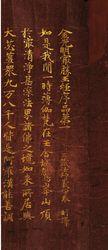 金光明最勝王經序品第一
三藏法師義淨奉　制譯
如是我聞一時薄伽梵在王舍城鷲峯山頂
於最清淨甚深法界諸佛之境如來所居與
大苾芻眾九万八千人皆是阿羅漢能善調